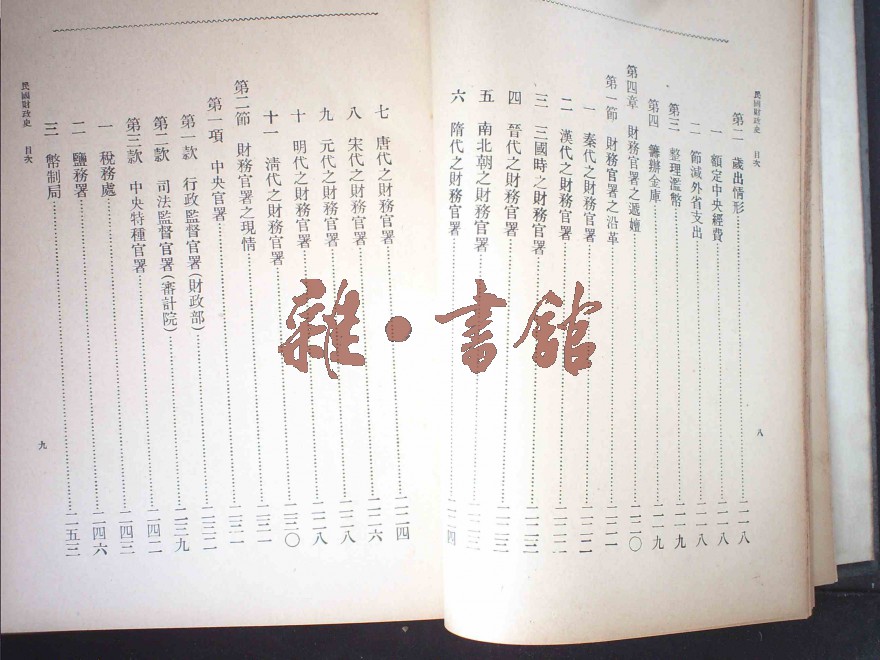 民國財政史 目次
第二 歲出情形……二一八
一 額定中央經費……二一八
二 節減外省支出……二一八
第三 整理濫幣……二一九
第四 籌辦金庫……二一九
第四章 財務官署之遞嬗……二二〇
第一節 財務官署之沿革……二二一
一 秦代之財務官署……二二二
二 漢代之財務官署……二二二
三 三國時之財務官署……二二三
四 晉代之財務官署……二二三
五 南北朝之財務官署……二二三
六 隋代之財務官署……二二四
八
七 唐代之財務官署……二二四
八 宋代之財務官署……二二六
九 元代之財務官署……二二八
十 明代之財務官署……二二八
十一 清代之財務官署……二三〇
第二節 財務官署之現情……二三一
第一項 中央官署……二三一
第一款 行政監督官署(財政部)……二三二
第二款 司法監督官署(審計院)……二三九
第三款 中央特種官署……二四二
一 稅務處……二四三
二 鹽務署……二四六
三 幣制局……二五三
民國財政史 目次
九
雜·書館